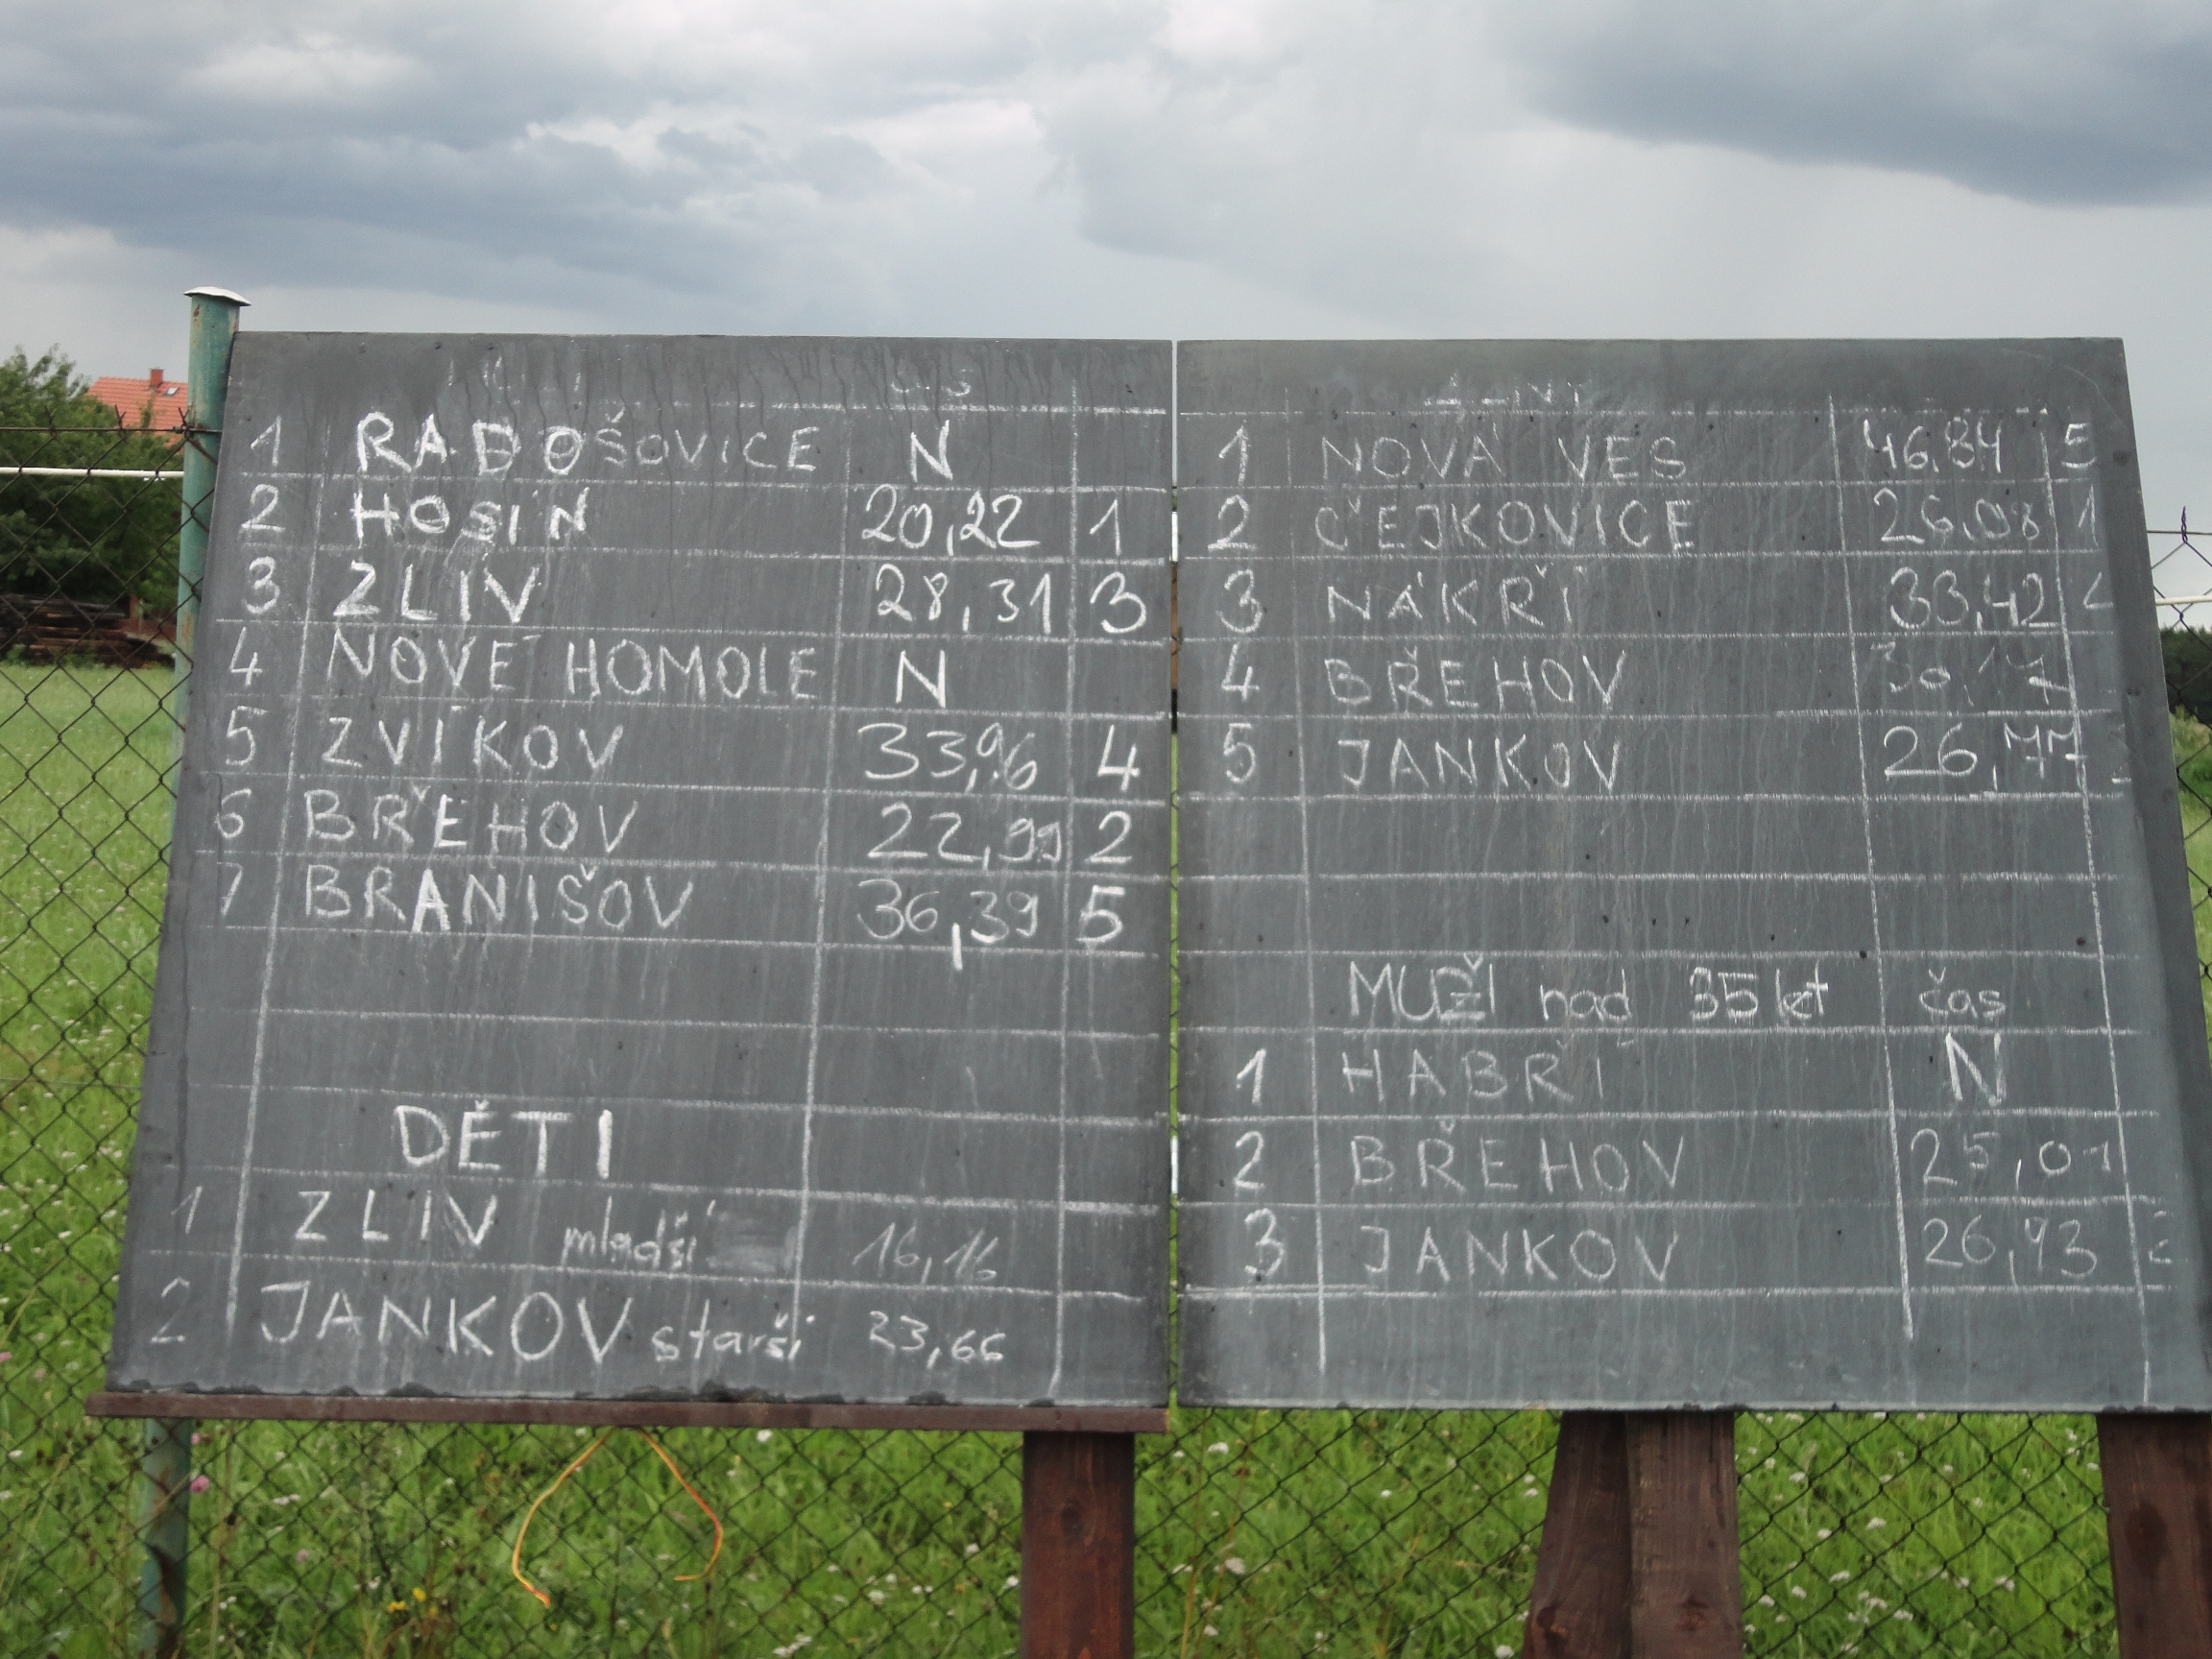 1 RADOŠOVICE N
2 HOSÍN 20,22 1
3 ZLIV 28,31 3
4 NOVÉ HOMOLE N
5 ZVÍKOV 33,96 4
6 BŘEHOV 22,99 2
7 BRANIŠOV 36,39 5
DĚTI
1 ZLIV mladší 16,16
2 JANKOV starší 23,66
1 NOVÁ VES 46,84 5
2 ČEJKOVICE 26,08 1
3 NÁKŘÍ 33,42
4 BŘEHOV
5 JANKOV 26,77
MUŽI nad 35 let čas
1 HABŘÍ N
2 BŘEHOV 25,01
3 JANKOV 26,93